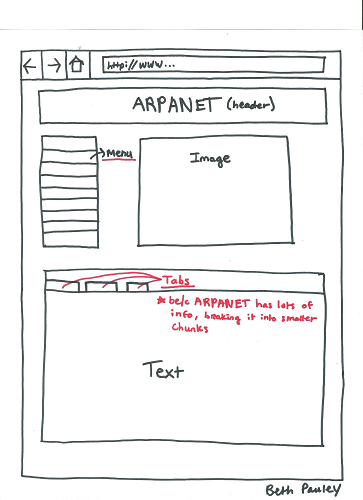 http://www...
ARPANET (header)
Menu
Image
Tabs
* be/c ARPANET has lots of
info, breaking it into smaller
chunks
Text
Beth Pauley